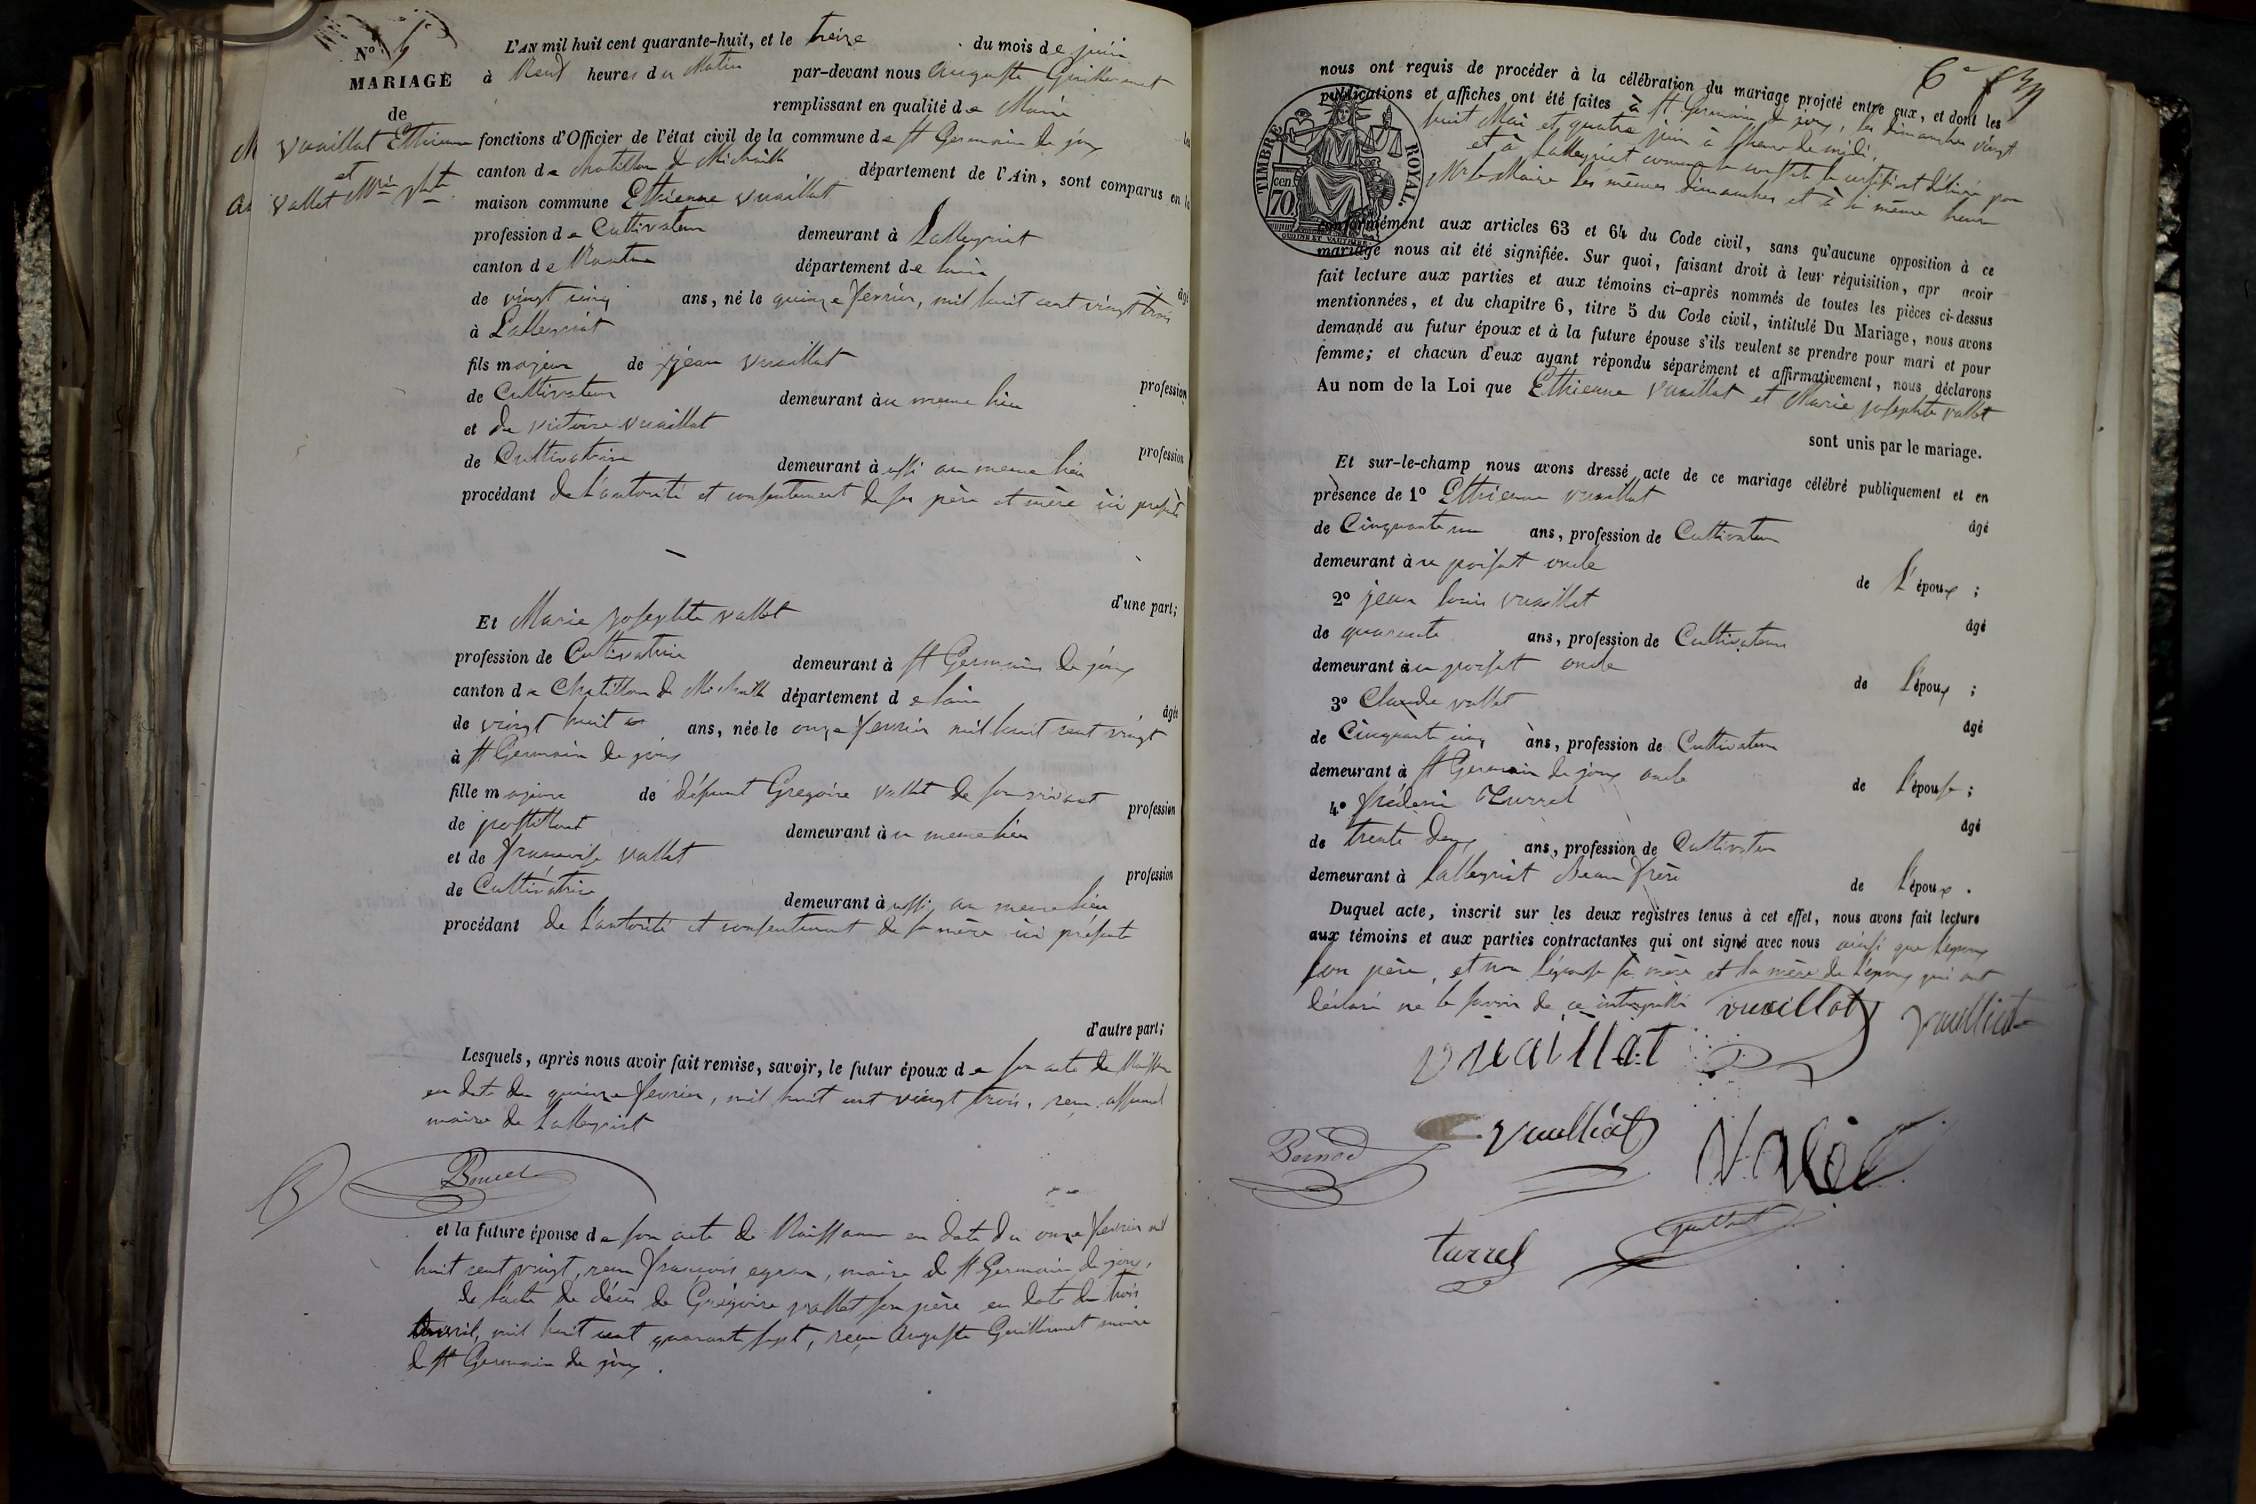 N° 5
MARIAGE
de
Vuaillat Ethienne
et
Vallet Mrie Jphte
L'AN mil huit cent quarante-huit, et le treize du mois de juin
à Neuf heures du Matin par-devant nous Auguste Guillermet
remplissant en qualité de Maire les
fonctions d'Officier de l'état civil de la commune de St Germain de joux
canton de Chatillon de Michaille département de l'Ain, sont comparus en la
maison commune Ethienne Vuaillat
profession de Cultivateur demeurant à Lalleyriat
canton de Nantua département de lain
âgé
de vingt cinq ans, né le quinze fevrier, mil huit cent vingt trois
à Lalleyriat
fils majeur de jean Vuaillat
profession
de Cultivateur demeurant àu meme lieu
et de victoire Vuaillat
profession
de Cultivatrice demeurant àussi au meme lieu
procédant de L'autorité et consentement de ses père et mère ici présents
d'une part;
Et Marie Josephte Vallet
profession de Cultivatrice demeurant à St Germain de joux
canton de Chatillon de Michaille département de lain
âgée
de vingt huit ans, née le onze fevrier mil huit cent vingt
à St Germain de joux
fille majeure de défunt Gregoire Vallet de son vivant
profession
de postillont demeurant àu meme lieu
et de francoise Vallet
profession
de Cultivatrice demeurant àussi au meme lieu
procédant de L'autorité et consentement de sa mère ici présente
d'autre part;
Lesquels, après nous avoir fait remise, savoir, le futur époux de son acte de Naissance
en date du quinze fevrier, mil huit cent vingt trois, reçu
maire de Lalleyriat
et la future épouse de son acte de Naissance en date du onze fevrier mil
huit cent vingt, reçu françois, maire de St Germain de joux,
de l'acte de décès de Grégoire Vallet son père en date du trois
avril, mil huit cent quarante sept, reçu Auguste Guillermet maire
de St Germain de joux.
6e
nous ont requis de procéder à la célébration du mariage projeté entre eux, et dont les
publications et affiches ont été faites à St Germain de joux, les dimanches vingt
huit Mai et quatre juin à l'heure de midi,
et à Lalleyriat comme le constate le certificat délivré par
Mr le Maire les mêmes dimanches et à la même heure
TIMBRE ROYAL.
70 cen
conformément aux articles 63 et 64 du Code civil, sans qu'aucune opposition à ce
mariage nous ait été signifiée. Sur quoi, faisant droit à leur réquisition, apr avoir
fait lecture aux parties et aux témoins ci-après nommés de toutes les pièces ci-dessus
mentionnées, et du chapitre 6, titre 5 du Code civil, intitulé Du Mariage, nous avons
demandé au futur époux et à la future épouse s'ils veulent se prendre pour mari et pour
femme; et chacun d'eux ayant répondu séparément et affirmativement, nous déclarons
Au nom de la Loi que Ethienne Vuaillat et Marie Josephte Vallet
sont unis par le mariage.
Et sur-le-champ nous avons dressé acte de ce mariage célébré publiquement et en
présence de 1° Ethienne Vuaillat
âgé
de Cinquante un ans, profession de Cultivateur
demeurant à u poisat oncle de L'époux ;
2° jean louis Vuaillat
âgé
de quarante ans, profession de Cultivateur
demeurant à u poisat oncle de L'époux ;
3° Claude Vallet
âgé
de Cinquante cinq ans, profession de Cultivateur
demeurant à St Germain de joux oncle de l'épouse ;
4° fréderic Turrel
âgé
de trente deux ans, profession de Cultivateur
demeurant à Lalleyriat Beau frère de l'époux .
Duquel acte, inscrit sur les deux registres tenus à cet effet, nous avons fait lecture
aux témoins et aux parties contractantes qui ont signé avec nous ainsi que l'époux
son père, et non l'épouse sa mère et la mère de l'époux qui ont
déclaré ne le savoir de ce interpellé
vuaillat
Vuilliat
vuaillat
Vuilliat
turrel